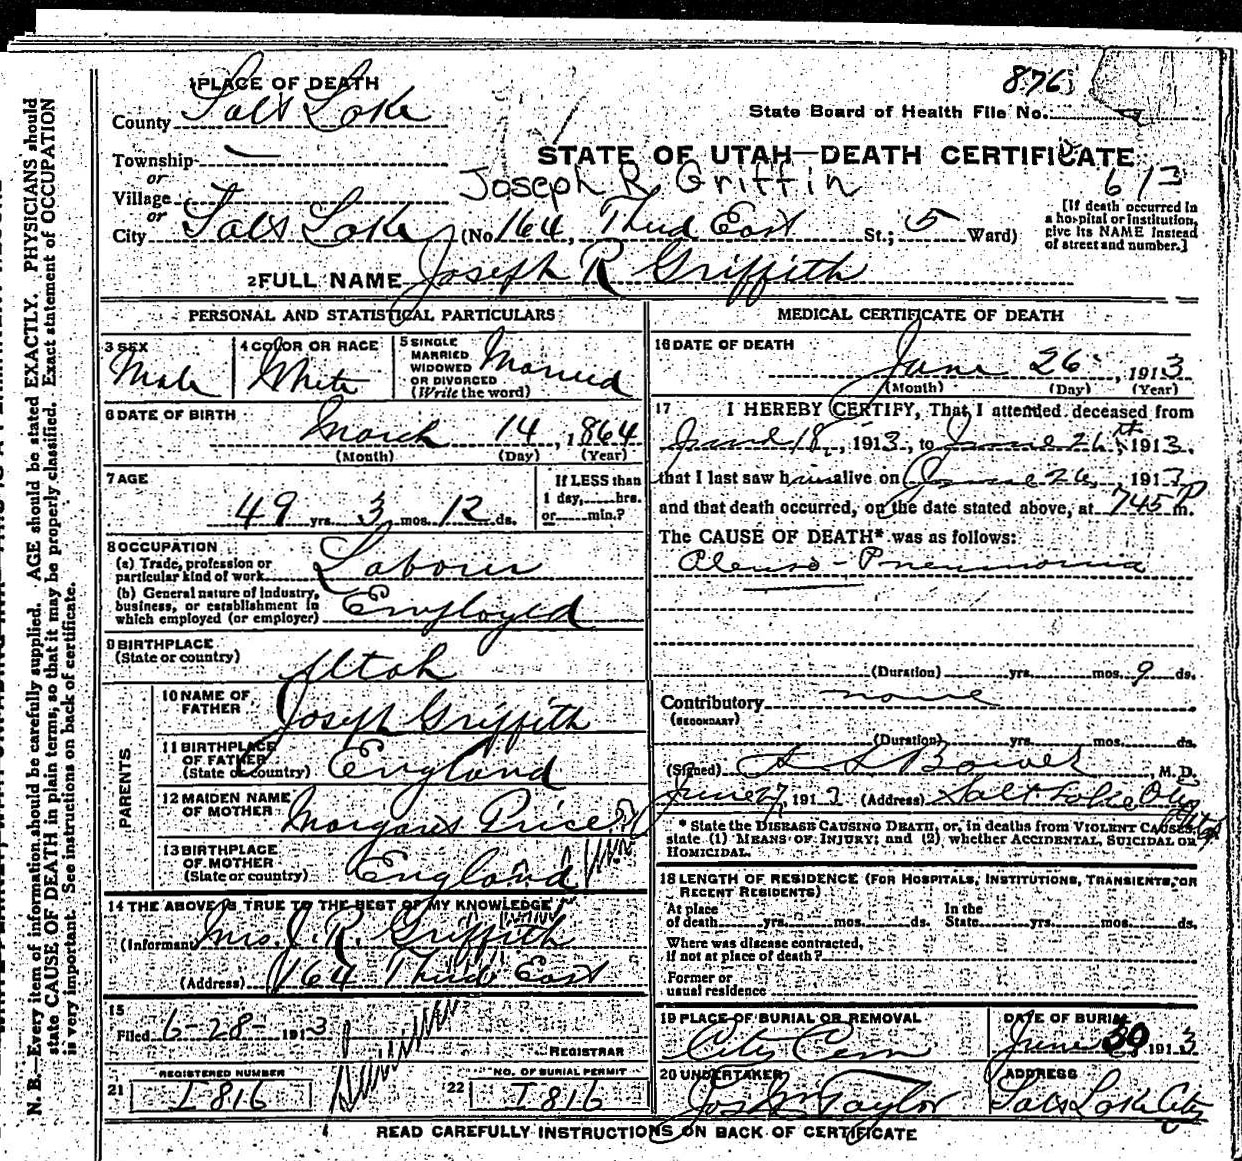 876
State Board of Health File No.
1 PLACE OF DEATH
County Salt Lake
STATE OF UTAH—DEATH CERTIFICATE
Township
or
Joseph R. Griffin
613
Village
or
City Salt Lake (No. 164, Third East St.; 5 Ward)
[If death occurred in
a hospital or institution,
give its NAME instead
of street and number.]
2 FULL NAME Joseph R Griffith
PERSONAL AND STATISTICAL PARTICULARS
3 SEX
Male
4 COLOR OR RACE
White
5 SINGLE
MARRIED
WIDOWED
OR DIVORCED
(Write the word)
Married
6 DATE OF BIRTH
March 14, 1864
(Month) (Day) (Year)
7 AGE
49 yrs. 3 mos. 12 ds.
If LESS than
1 day, hrs.
or min.?
8 OCCUPATION
(a) Trade, profession or
particular kind of work Laborer
(b) General nature of industry,
business, or establishment in
which employed (or employer) Employed
9 BIRTHPLACE
(State or country)
Utah
PARENTS
10 NAME OF
FATHER
Joseph Griffith
11 BIRTHPLACE
OF FATHER
(State or country) England
12 MAIDEN NAME
OF MOTHER Margaret Price
13 BIRTHPLACE
OF MOTHER
(State or country) England
14 THE ABOVE IS TRUE TO THE BEST OF MY KNOWLEDGE
(Informant Mrs. J. R. Griffith
(Address) 164 Third East
15
Filed 6-28- 1913
REGISTRAR
REGISTERED NUMBER
21 I 816
NO. OF BURIAL PERMIT
22 I 816
MEDICAL CERTIFICATE OF DEATH
16 DATE OF DEATH
June 26, 1913
(Month) (Day) (Year)
17 I HEREBY CERTIFY, That I attended deceased from
June 18, 1913, to June 26th, 1913,
that I last saw him alive on June 26, 1913
and that death occurred, on the date stated above, at 745 P m.
The CAUSE OF DEATH* was as follows:
Pleuro-Pneumonia
(Duration) yrs. mos. 9 ds.
Contributory none
(SECONDARY)
(Duration) yrs. mos. ds.
(Signed) Bower, M. D.
June 27, 1913 (Address) Salt Lake City
Utah
* State the DISEASE CAUSING DEATH, or, in deaths from VIOLENT CAUSES,
state (1) MEANS OF INJURY; and (2) whether ACCIDENTAL, SUICIDAL OR
HOMICIDAL.
18 LENGTH OF RESIDENCE (FOR HOSPITALS, INSTITUTIONS, TRANSIENTS, OR
RECENT RESIDENTS)
At place
of death yrs. mos. ds.
In the
State yrs. mos. ds.
Where was disease contracted,
if not at place of death?
Former or
usual residence
19 PLACE OF BURIAL OR REMOVAL
City Cem
DATE OF BURIAL
June 30, 1913
20 UNDERTAKER
Jos Wm Taylor
ADDRESS
Salt Lake City
READ CAREFULLY INSTRUCTIONS ON BACK OF CERTIFICATE
N. B.—Every item of information should be carefully supplied. AGE should be stated EXACTLY. PHYSICIANS should
state CAUSE OF DEATH in plain terms, so that it may be properly classified. Exact statement of OCCUPATION
is very important. See instructions on back of certificate.